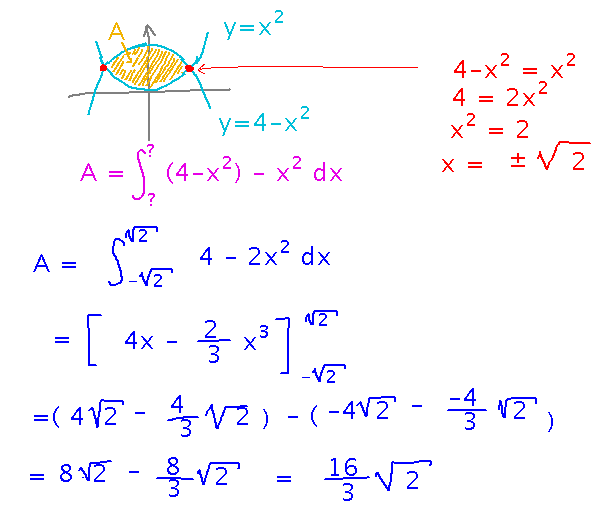 A
y=x²
4-x² = x²
4 = 2x²
x² = 2
x = ±√2
y=4-x²
A = ∫_?^? (4-x²) - x² dx
A = ∫_{-√2}^{√2} 4 - 2x² dx
= [4x - 2/3 x³]_{-√2}^{√2}
=(4√2 - 4/3 √2) - (-4√2 - -4/3 √2)
= 8√2 - 8/3 √2 = 16/3 √2